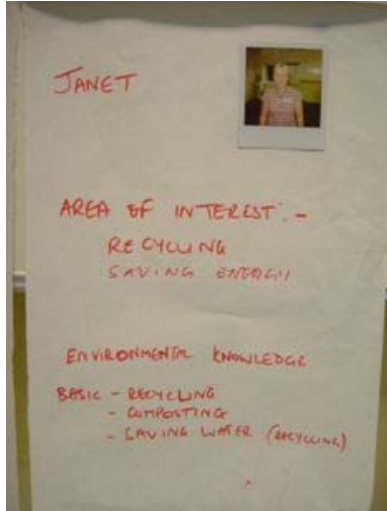 JANET
AREA OF INTEREST :-
RECYCLING
SAVING ENERGY
ENVIRONMENTAL KNOWLEDGE
BASIC - RECYCLING
- COMPOSTING
- SAVING WATER (RECYCLING)